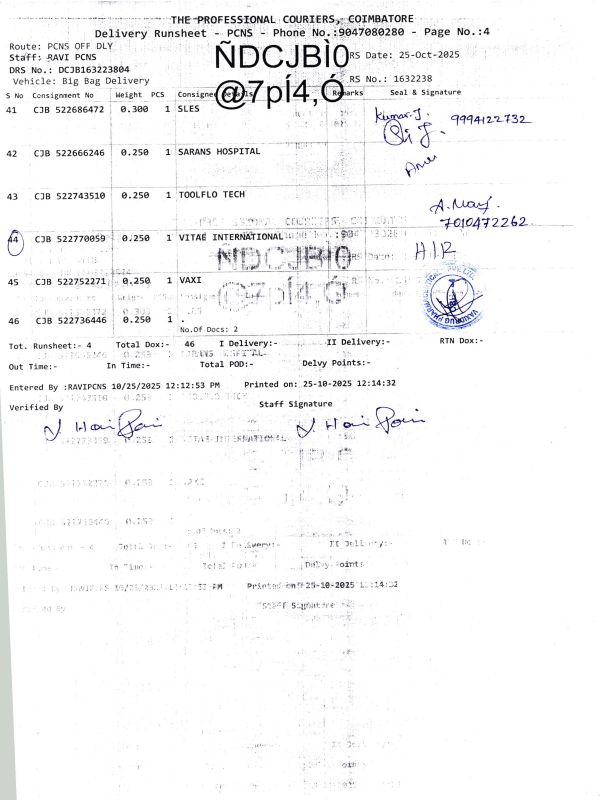 THE PROFESSIONAL COURIERS, COIMBATORE
Delivery Runsheet - PCNS - Phone No.:9047080280 - Page No.:4
Route: PCNS OFF DLY
Staff: RAVI PCNS
DRS No.: DCJB163223804
Vehicle: Big Bag Delivery
ÑDCJBÌ0
@7pÍ4,Ó
RS Date: 25-Oct-2025
RS No.: 1632238
S No Consignment No Weight PCS Consignee Details Remarks Seal & Signature
41 CJB 522686472 0.300 1 SLES Kumar.J. 9994122732
42 CJB 522666246 0.250 1 SARANS HOSPITAL
43 CJB 522743510 0.250 1 TOOLFLO TECH
7010472262
44 CJB 522770059 0.250 1 VITAE INTERNATIONAL H/R
45 CJB 522752271 0.250 1 VAXI
46 CJB 522736446 0.250 1 .
No.Of Docs: 2
Tot. Runsheet:- 4 Total Dox:- 46 I Delivery:- II Delivery:- RTN Dox:-
Out Time:- In Time:- Total POD:- Delvy Points:-
Entered By :RAVIPCNS 10/25/2025 12:12:53 PM Printed on: 25-10-2025 12:14:32
Verified By Staff Signature